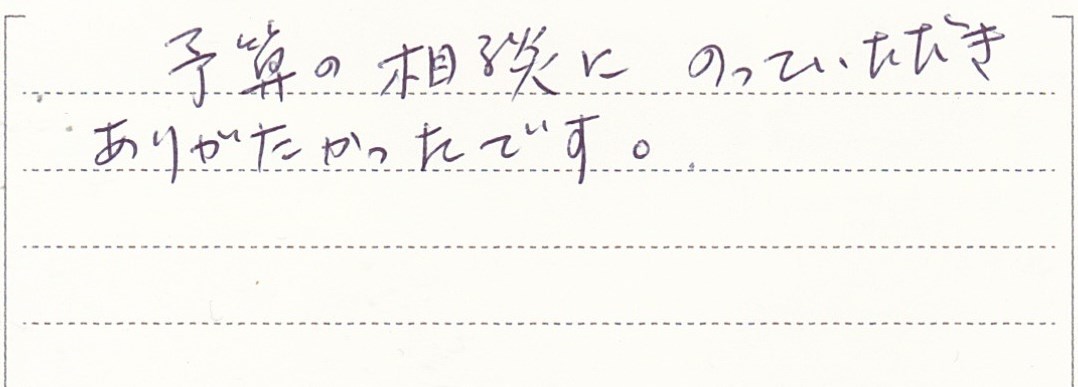 予算の相談に のっていただき
ありがたかったです。